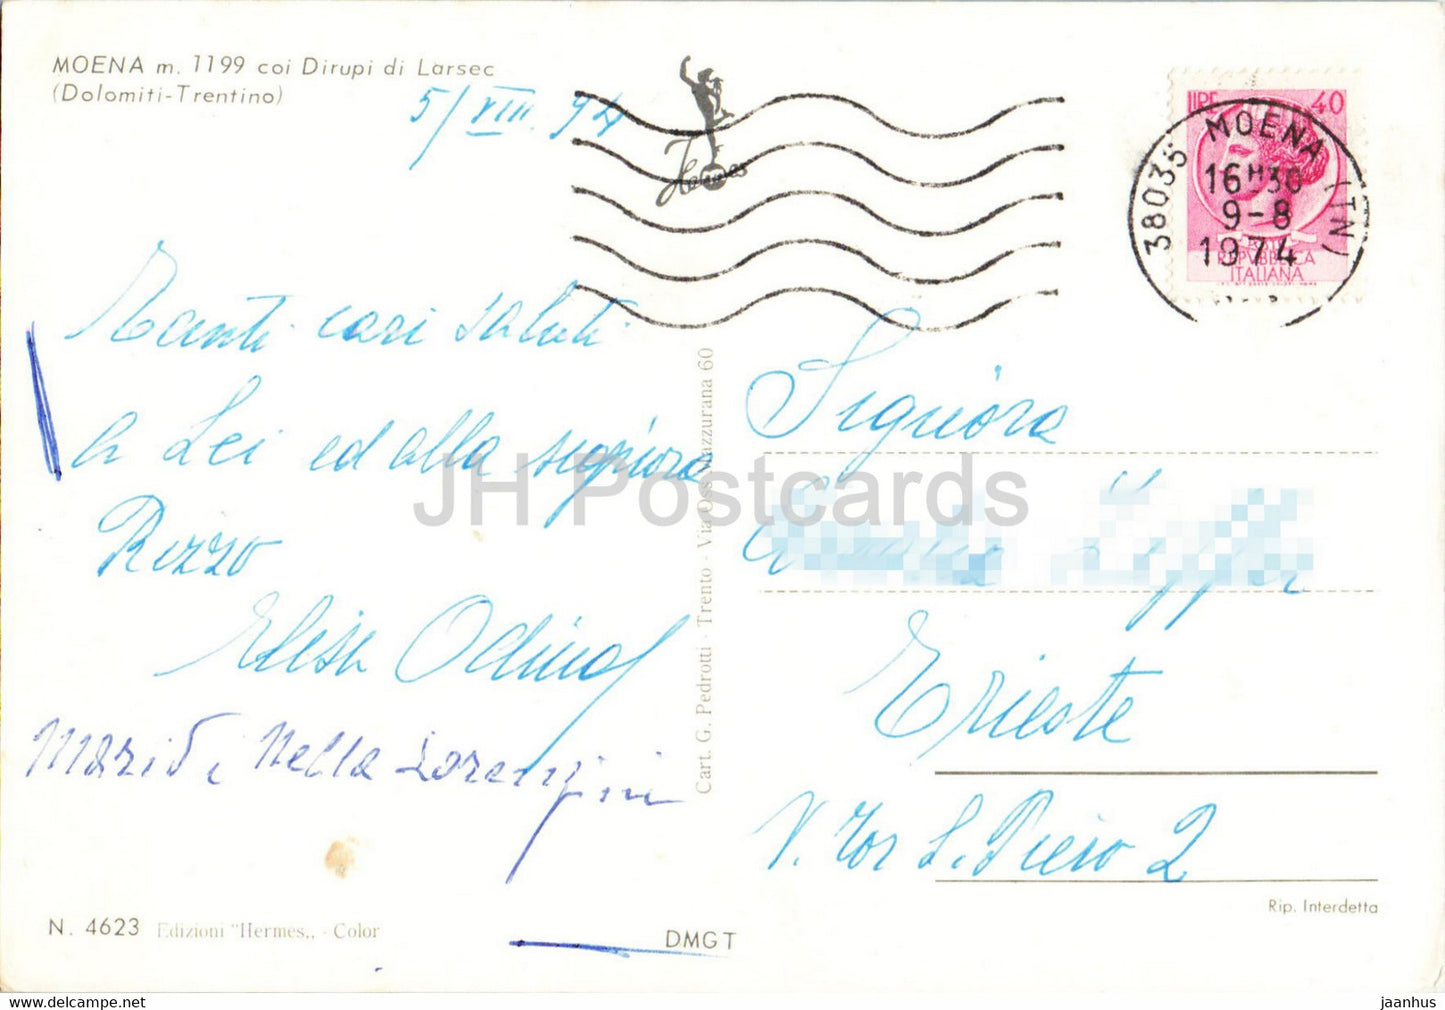 MOENA m. 1199 coi Dirupi di Larsec
(Dolomiti-Trentino)
5/VIII. 74
Hermes
LIRE 40
38035 MOENA (TN)
16H30
9-8
1974
REPVBBLICA
ITALIANA
Tanti cari saluti
a Lei ed alla signora
Rizzo
Elisa
Nella Lorenzini
Signora
Trieste
V. Tor S. Piero 2
Cart. G. Pedrotti - Trento - Via Oss Mazzurana 60
N. 4623 Edizioni "Hermes,, - Color
DMGT
Rip. Interdetta
JH Postcards
jaanhus